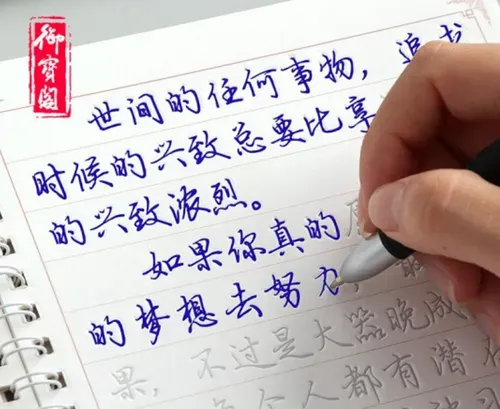 御寶閣
世间的任何事物，追求
时候的兴致总要比享
的兴致浓烈。
如果你真的愿
的梦想去努力，最
果，不过是大器晚成
个人都有潜